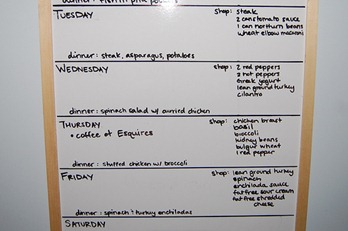 TUESDAY
shop: steak
2 cans tomato sauce
1 can northern beans
wheat elbow macaroni
dinner: steak, asparagus, potatoes
WEDNESDAY
shop: 2 red peppers
2 hot peppers
greek yogurt
lean ground turkey
cilantro
dinner: spinach salad w/ curried chicken
THURSDAY
• coffee @ Esquires
shop: chicken breast
basil
broccoli
kidney beans
bulgur wheat
1 red pepper
dinner: stuffed chicken w/ broccoli
FRIDAY
shop: lean ground turkey
spinach
enchilada sauce
fat free sour cream
fat free shredded
cheese
dinner: spinach & turkey enchiladas
SATURDAY